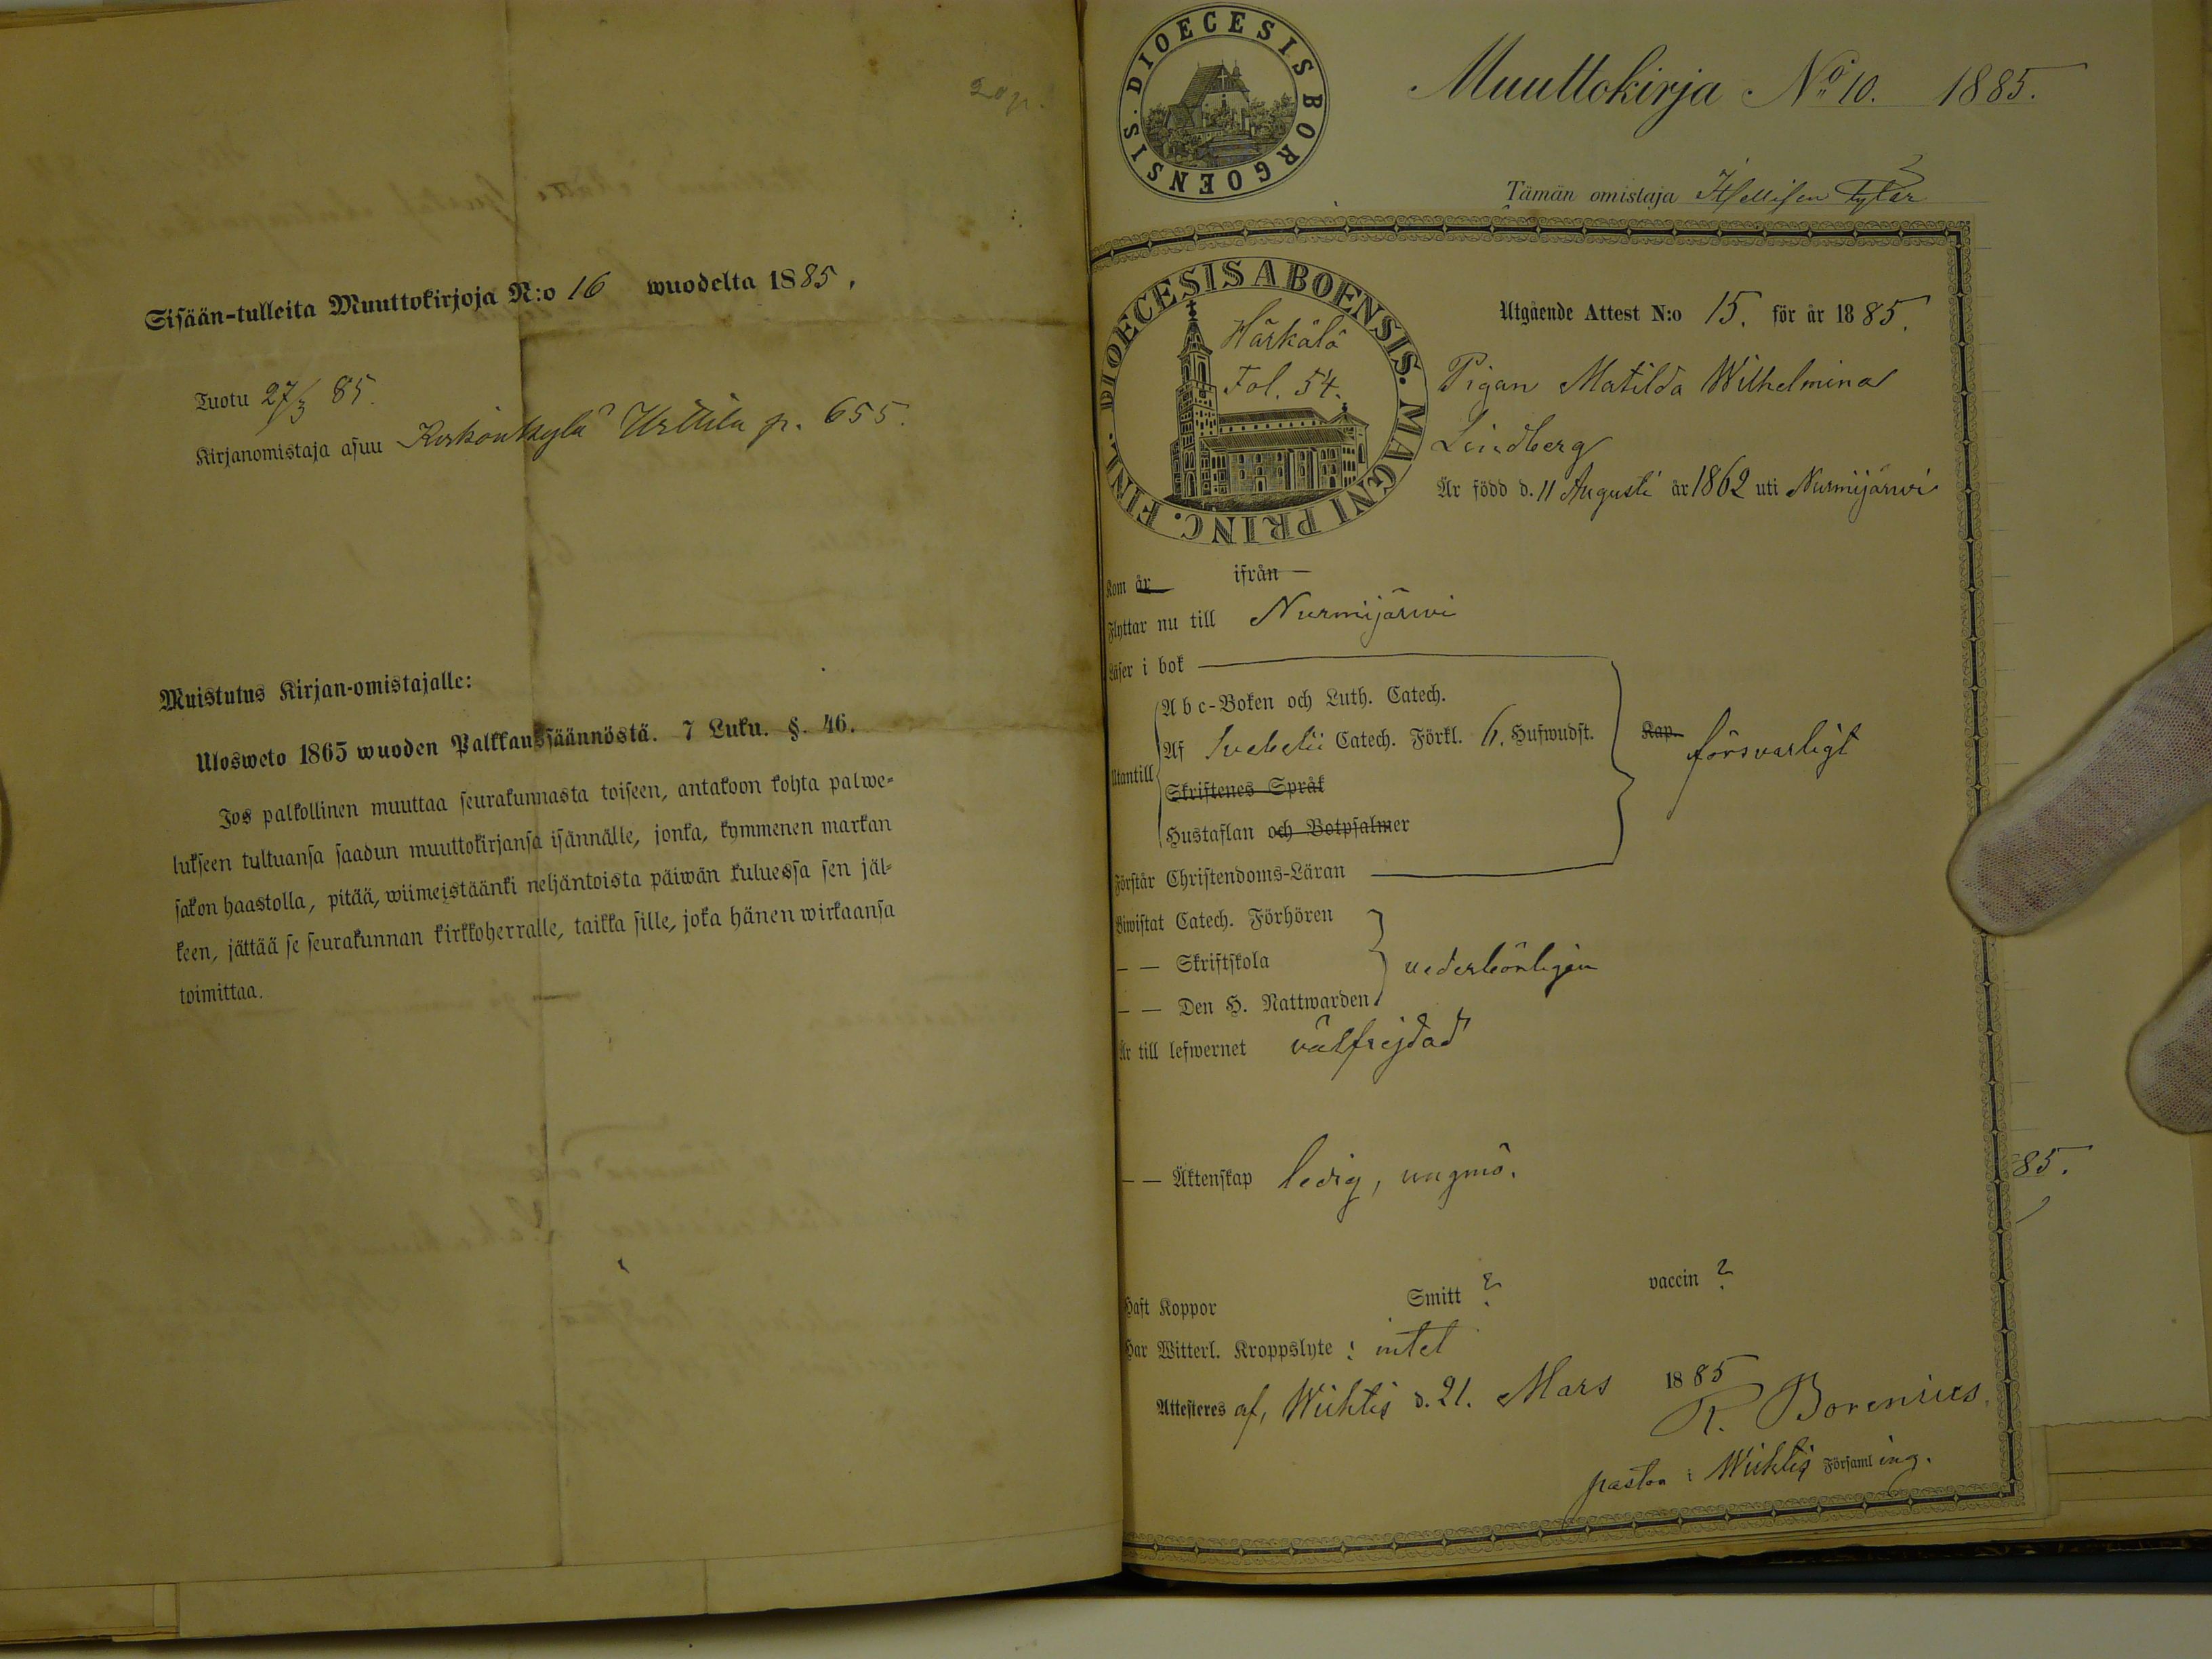 20 p.
Sisään-tulleita Muuttokirjoja N:o 16 wuodelta 1885.
Tuotu 27/3 85.
Kirjanomistaja asuu Kirkonkylä Urttila p. 655.
Muistutus Kirjan-omistajalle:
Ulosweto 1865 wuoden Palkkaussäännöstä. 7 Luku. §. 46.
Jos palkollinen muuttaa seurakunnasta toiseen, antakoon kohta palwe-
lukseen tultuansa saadun muuttokirjansa isännälle, jonka, kymmenen markan
sakon haastolla, pitää, wiimeistäänki neljäntoista päiwän kuluessa sen jäl-
keen, jättää se seurakunnan kirkkoherralle, taikka sille, joka hänen wirkaansa
toimittaa.
DIOECESIS BORGOENSIS.
Muuttokirja No 10. 1885.
Tämän omistaja
DIOECESIS ABOENSIS. MAGNI PRINC. FINL.
Härkälä
Fol. 54.
Utgående Attest N:o 15. för år 1885.
Pigan Matilda Wilhelmina
Lindberg
Är född d. 11 Augusti år 1862 uti Nurmijärwi
Kom år ifrån
Flyttar nu till Nurmijärwi
Läser i bok
Utantill
A b c-Boken och Luth. Catech.
Af Svebelii Catech. Förkl. 6. Hufwudst.
Skriftenes Språk
Hustaflan och Botpsalmer
Kap. försvarligt
Förstår Christendoms-Läran
Biwistat Catech. Förhören
— — Skriftskola
— — Den H. Nattwarden
vederbörligen
Är till lefwernet välfrejdad
— — Äktenskap ledig, ungmö.
85.
Haft Koppor Smitt ? vaccin ?
Har Witterl. Kroppslyte : intet
Attesteres af, Wichtis d. 21. Mars 1885
R. Borenius.
pastor i Wichtis Församling.